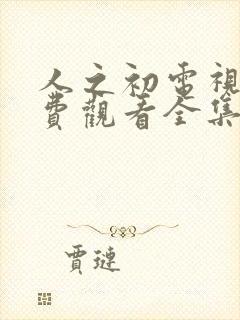 人之初電視
費觀看全集
賈璉